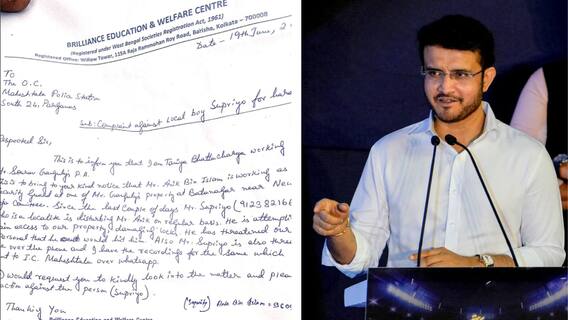 BRILLIANCE EDUCATION & WELFARE CENTRE
(Registered under West Bengal Societies Registration Act, 1961)
Registered Office: Willow Tower, 115A Raja Rammohan Roy Road, Barisha, Kolkata - 700008
Date - 19th June, 2
To
The O.C.
Maheshtala Police Station
South 24, Parganas
Sub: Complaint against Local boy Supriyo for
espected Sir,
This is to inform you that I am Taniya Bhattacharya working
Sourav Ganguly P.A.
is to bring to your kind notice that Mr. Arik Bin Islam is working as
curity Guard at one of Mr. Ganguly's property at Batanagar near
Since the last couple of days Mr. Supriyo (
who is a location is disturbing Mr. Arik on regular basis. He is
access to our property, damaging locks. He has threatened our
personal that he would hit him. Also Mr. Supriyo is also
me over the phone and I have the recordings for the same which
to I.C. Maheshtala over whatsapp.
I would request you to kindly look into the matter and
action against this person (Supriyo).
Thanking You
(Supriyo)
Brilliance Education and Welfare Centre